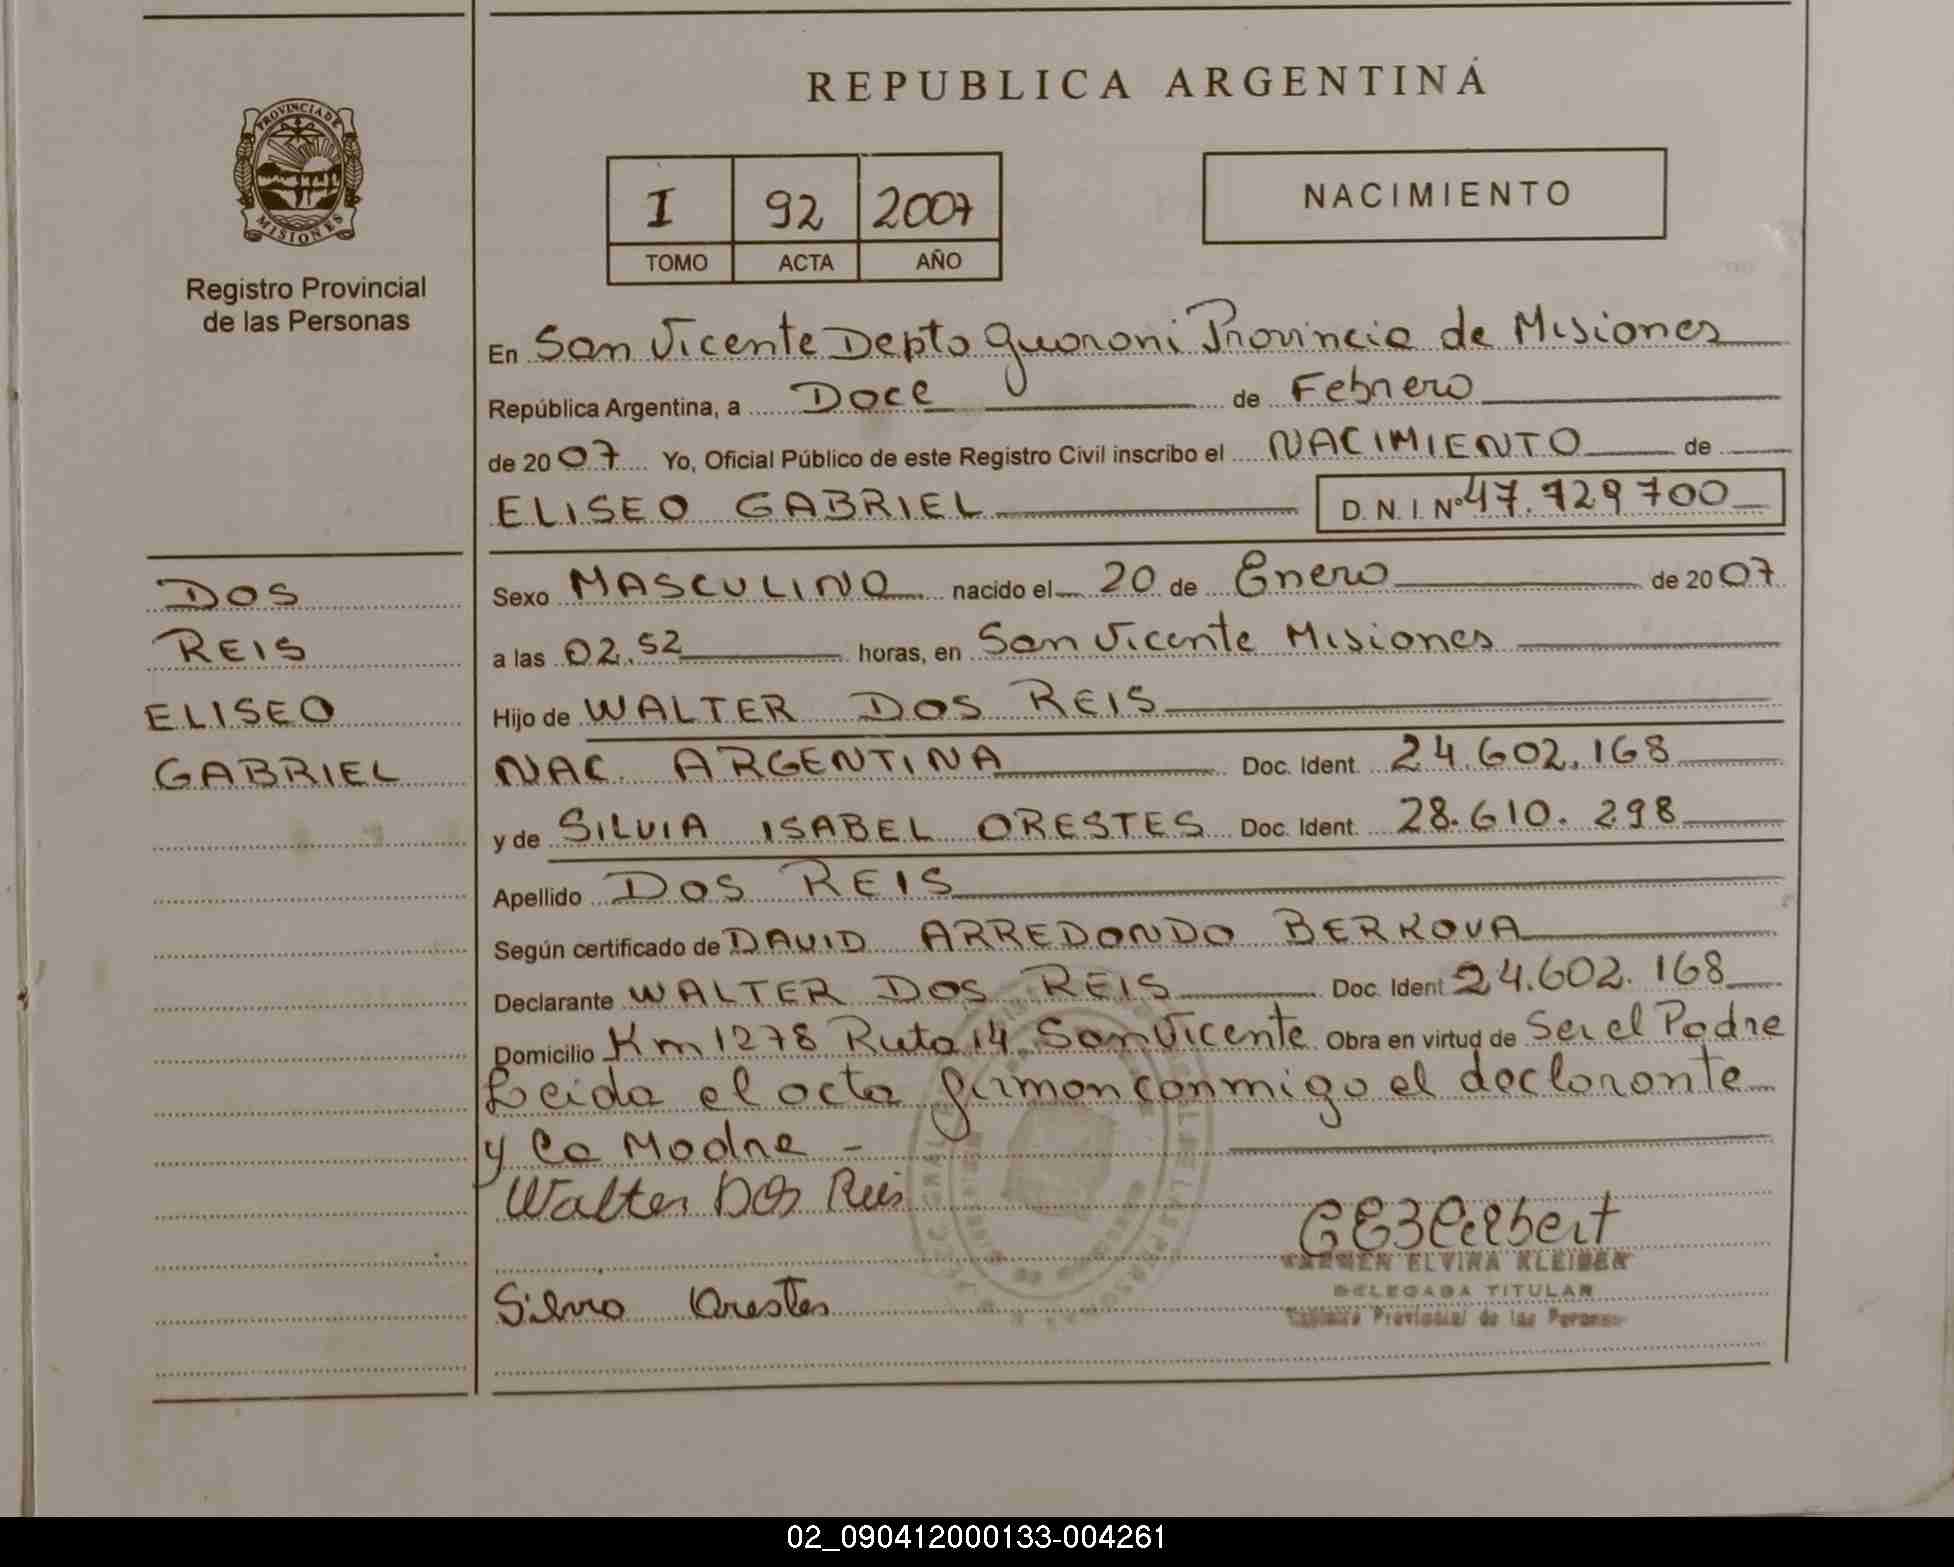 REPUBLICA ARGENTINA
PROVINCIA DE
MISIONES
Registro Provincial
de las Personas
I 92 2007
TOMO ACTA AÑO
NACIMIENTO
En San Vicente Depto Guarani Provincia de Misiones
República Argentina, a Doce de Febrero
de 2007 Yo, Oficial Público de este Registro Civil inscribo el NACIMIENTO de
ELISEO GABRIEL D.N.I. Nº 47.729700
DOS
REIS
ELISEO
GABRIEL
Sexo MASCULINO nacido el 20 de Enero de 2007
a las 02.52 horas, en San Vicente Misiones
Hijo de WALTER DOS REIS
NAC. ARGENTINA Doc. Ident. 24.602.168
y de SILVIA ISABEL ORESTES Doc. Ident. 28.610.298
Apellido DOS REIS
Según certificado de DAVID ARREDONDO BERKOVA
Declarante WALTER DOS REIS Doc. Ident 24.602.168
Domicilio Km 1278 Ruta 14 San Vicente Obra en virtud de Ser el Padre
Leida el acta firman conmigo el declarante
y la Madre -
Walter Dos Reis
CARMEN ELVIRA KLEIBER
DELEGADA TITULAR
Registro Provincial de las Personas
Silvia Orestes
02_090412000133-004261